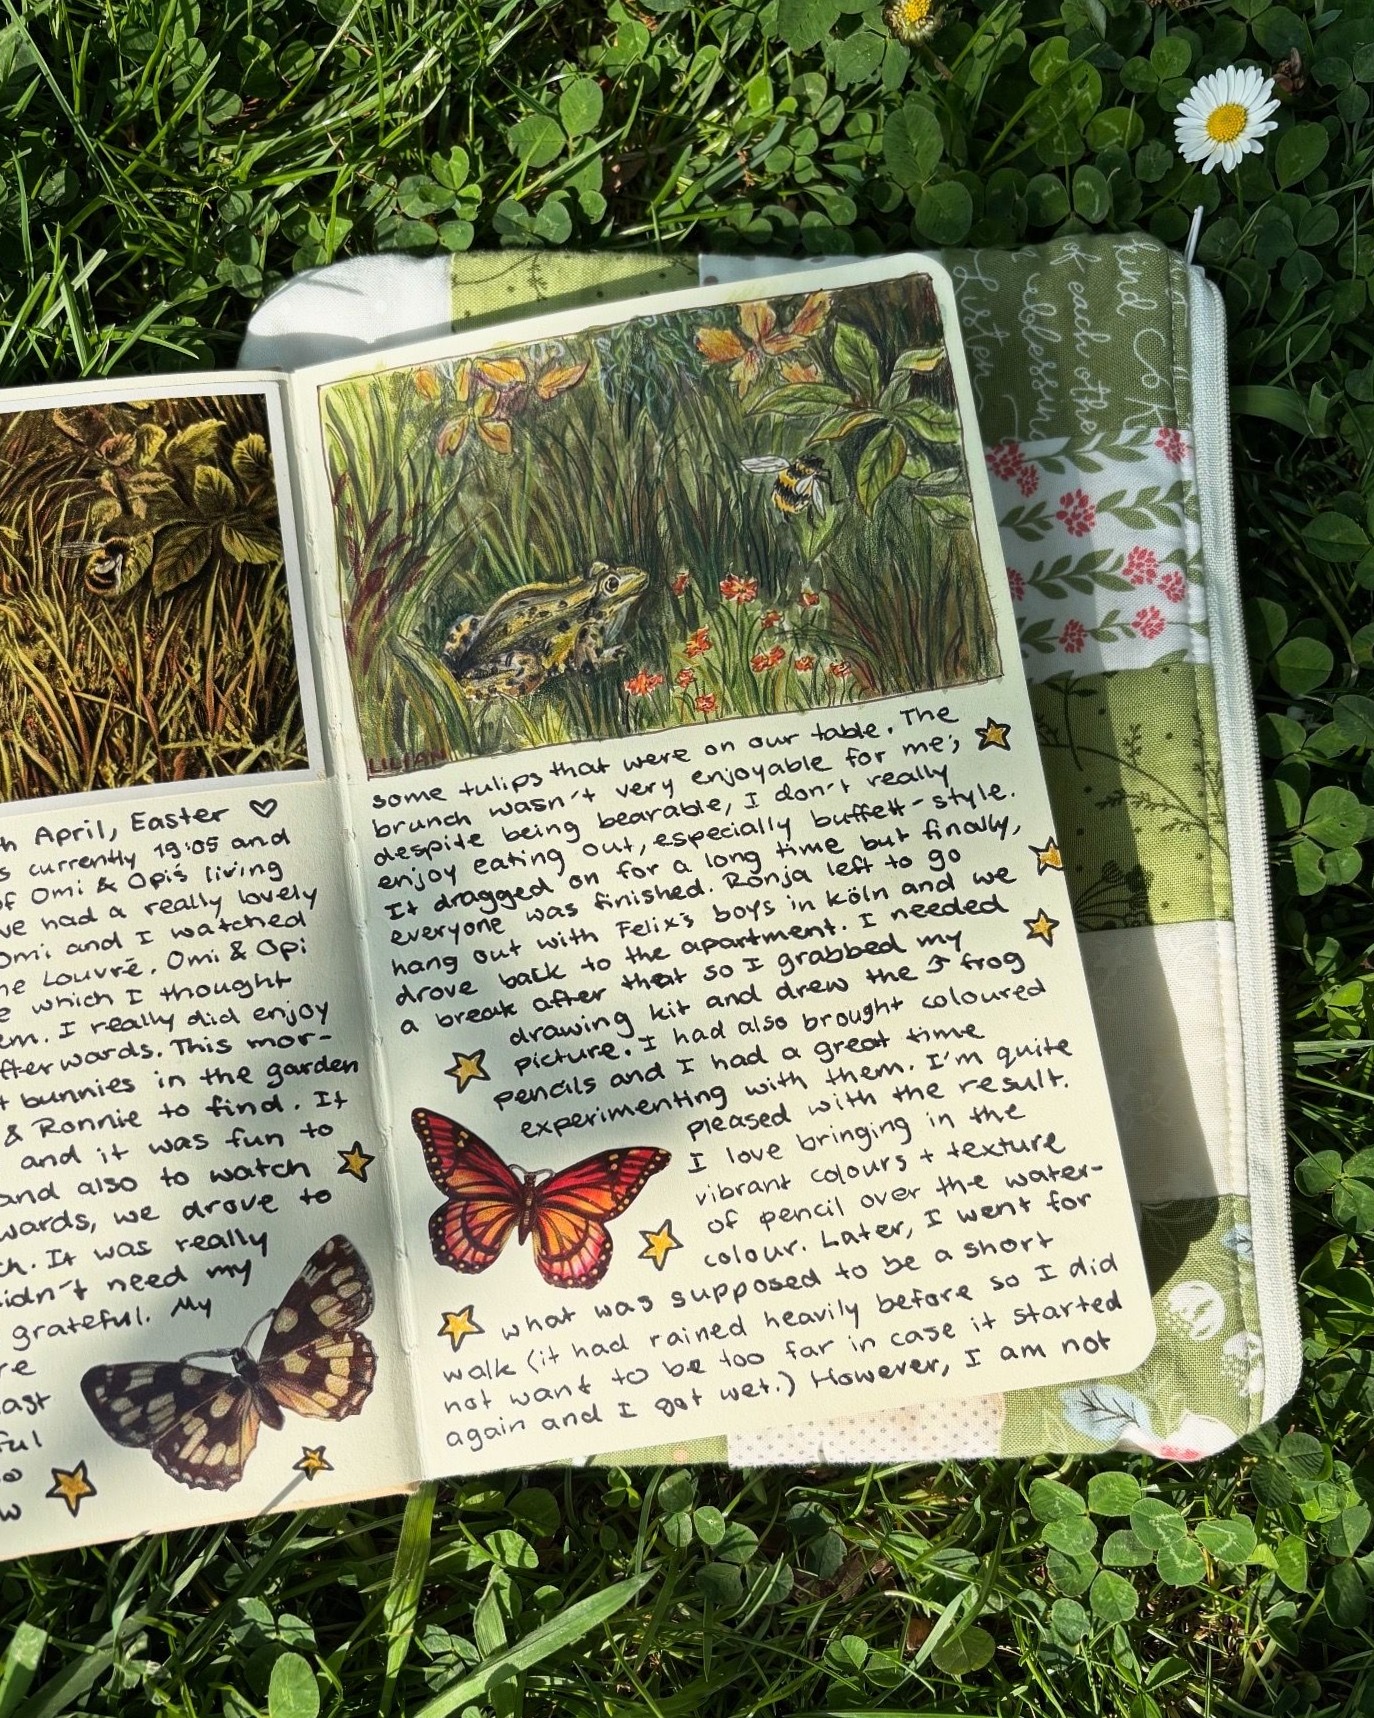 th April, Easter ♡
s currently 19:05 and
of Omi & Opi's living
ve had a really lovely
Omi and I watched
he Louvre. Omi & Opi
e which I thought
em. I really did enjoy
fterwards. This mor-
t bunnies in the garden
& Ronnie to find. It
and it was fun to
and also to watch
wards, we drove to
ch. It was really
idn't need my
grateful. My
re
ast
ful
o
w
LILIAN
some tulips that were on our table. The
brunch wasn't very enjoyable for me;
despite being bearable, I don't really
enjoy eating out, especially buffett-style.
It dragged on for a long time but finally,
everyone was finished. Ronja left to go
hang out with Felix's boys in köln and we
drove back to the apartment. I needed
a break after that so I grabbed my
drawing kit and drew the ↗ frog
picture. I had also brought coloured
pencils and I had a great time
experimenting with them. I'm quite
pleased with the result.
I love bringing in the
vibrant colours + texture
of pencil over the water-
colour. Later, I went for
what was supposed to be a short
walk (it had rained heavily before so I did
not want to be too far in case it started
again and I got wet.) However, I am not
kind
of each othe
blessin
Listen